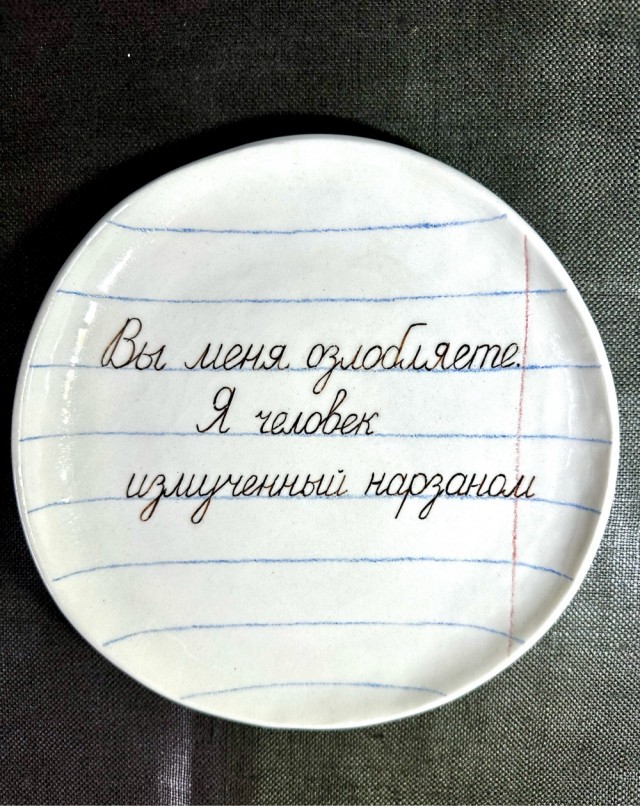 Вы меня озлобляете.
Я человек
измученный нарзаном